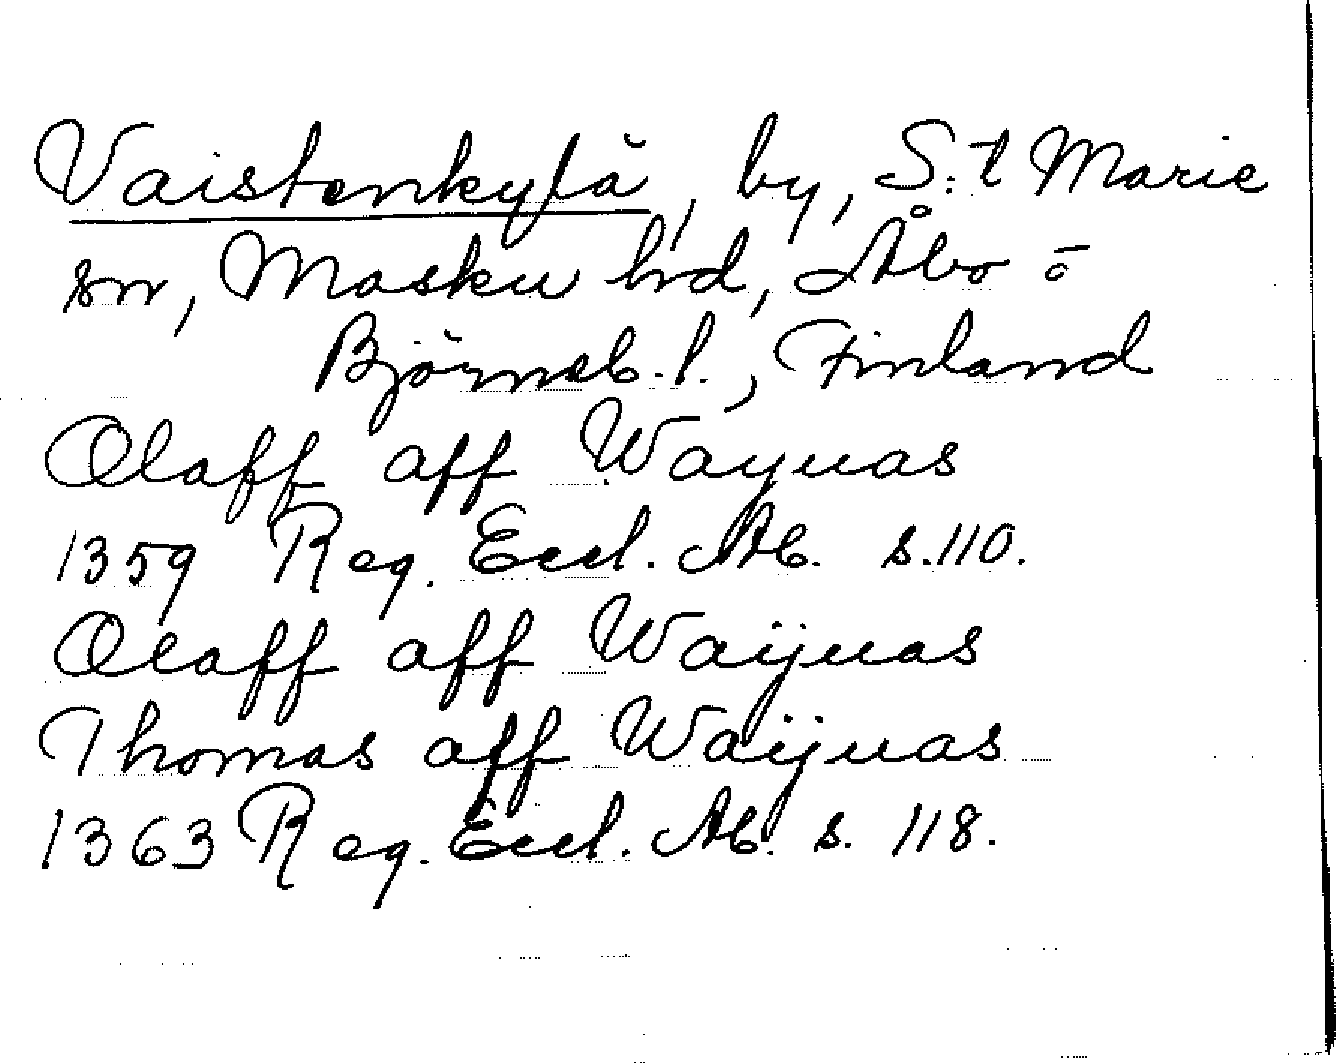 Vaistenkylä, by, S:t Marie
sn, Masku hd, Åbo o
Björneb. l., Finland
Olaff aff Wayuas
1359 Reg. Eccl. Ab. s. 110.
Olaff aff Waijuas
Thomas aff Waijuas
1363 Reg. Eccl. Ab. s. 118.